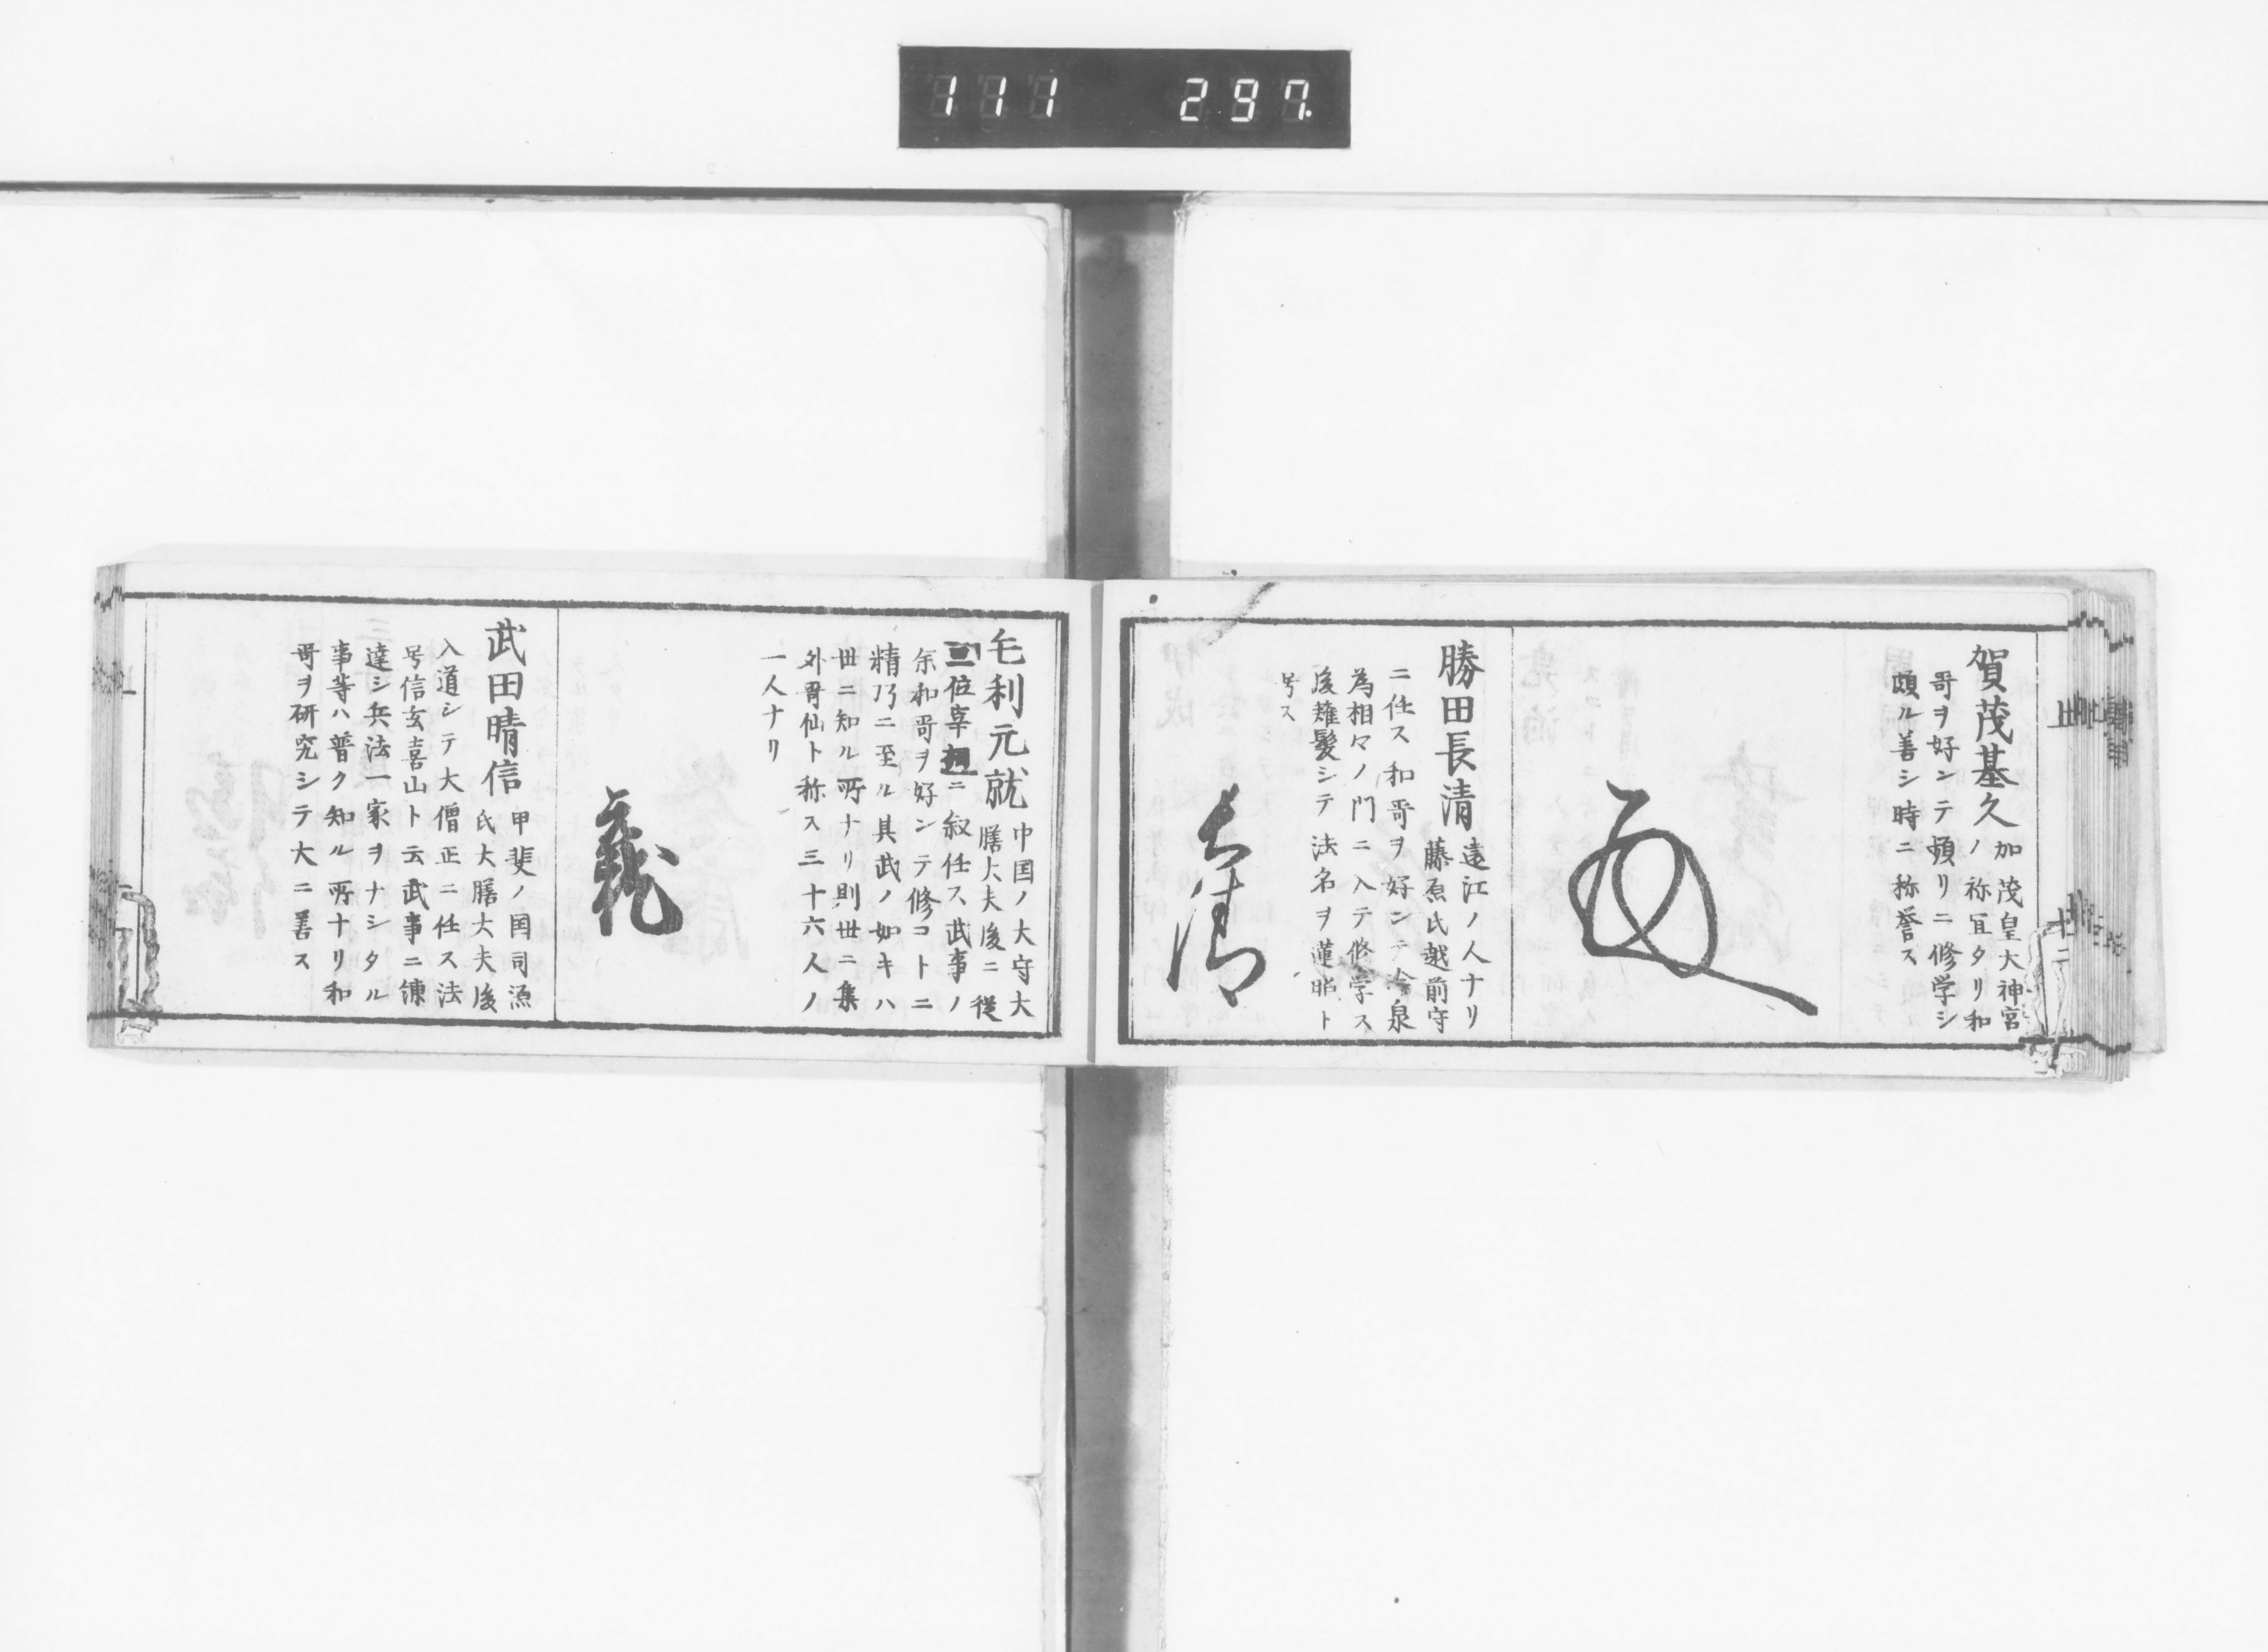 111 297.
賀茂基久 加茂皇大神宮
ノ祢宜タリ和
哥ヲ好ンテ頻リニ修学シ
頗ル善シ時ニ称誉ス
勝田長清 遠江ノ人ナリ
藤原氏越前守
ニ任ス和哥ヲ好ンテ冷泉
為相々ノ門ニ入テ修学ス
後薙髪シテ法名ヲ蓮昭ト
号ス
毛利元就 中国ノ大守大
膳大夫後ニ従
三位宰相ニ叙任ス武事ノ
余和哥ヲ好ンテ修コトニ
精乃ニ至ル其武ノ如キハ
世ニ知ル所ナリ則世ニ集
外哥仙ト称ス三十六人ノ
一人ナリ
武田晴信 甲斐ノ国司源
氏大膳大夫後
入道シテ大僧正ニ任ス法
号信玄喜山ト云武事ニ練
達シ兵法一家ヲナシタル
事等ハ普ク知ル所ナリ和
哥ヲ研究シテ大ニ善ス